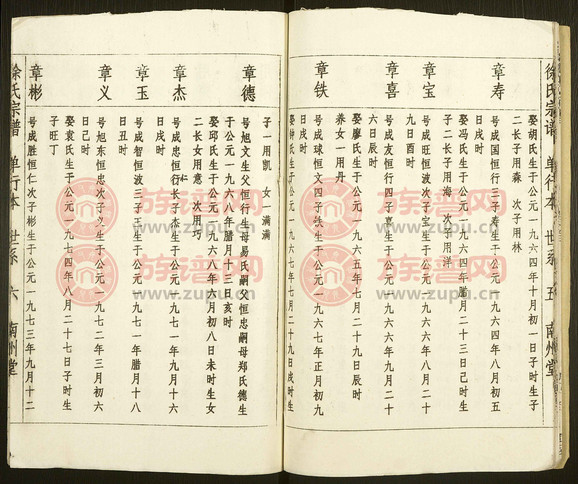 徐氏宗谱 单行本 世系 五 南州堂
娶胡氏生于公元一九六四年十月初一日子时生子
二长子用森 次子用林
章寿
号成国恒行三子寿生于公元一九六四年八月初五
日戌时
娶冯氏生于公元一九六四年腊月二十三日己时生
子二长子用海 次子用洋
章宝
号成旺恒波次子宝生于公元一九六六年八月二十
九日酉时
章喜
号成友恒行四子喜生于公元一九六六年八月二十
六日辰时
娶廖氏生于公元一九六五年七月二十日辰时
养女一用丹
章铁
号成球恒文四子铁生于公元一九六七年正月初九
日戌时
娶钟氏生于公元一九六七年七月二十九日戌时生
子一用凯 女一满满
章德
号旭文生父恒行生母易氏嗣父恒忠嗣母郑氏德生
于公元一九六八年腊月十三日亥时
娶邱氏生于公元一九六八年六月初八日未时生女
二长女用意 次用巧
章杰
号成忠恒仁长子杰生于公元一九七一年九月十六
日戌时
章玉
号成智恒波三子玉生于公元一九七一年腊月十八
日丑时
章义
号旭东恒忠次子义生于公元一九七二年三月初六
日己时
娶袁氏生于公元一九七四年八月二十七日子时生
子旺丁
章彬
号成胜恒仁次子彬生于公元一九七三年九月十二
徐氏宗谱 单行本 世系 六 南州堂
族谱网
www.zupu.cn
族谱网
www.zupu.cn